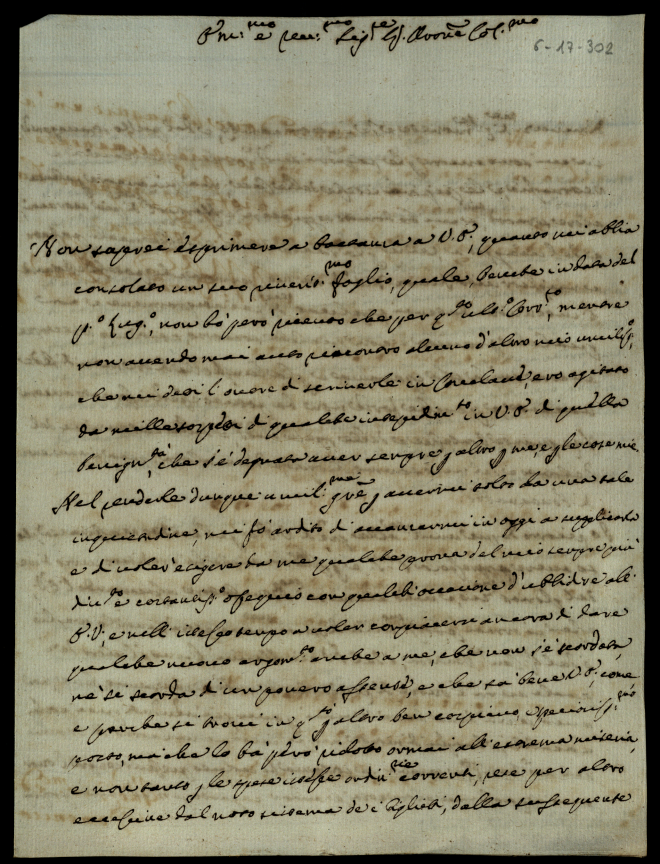 Ill.mo e Rev.mo Sig.re Sig.re Prone Col.mo
6-17-302
Non saprei esprimere a bastanza a V.S., quanto mi abbia
consolato un suo riverit.mo foglio, quale, benche in data del
p.o Lug.o, non hò però ricevuto che per q.sto ult.o Corr.to, mentre
non avendo mai auto riscontro alcuno d'altro mio umiliss.o
che mi diedi l'onore di scriverle in Conclave, ero agitato
da mille sospetti di qualche intepidim.to in V.S. di quella
benign.tà, che s'è degnata aver sempre altro me e le cose mie.
Nel renderle dunque umili.me gr.e avermi tolto da una tale
inquietudine, mi fò ardito di avanzarmi in oggi a supplicarla
e di voler esigere da me qualche prova del mio sempre più
div.to e costantiss.o ossequio con qualche occasione d'ubbidire all
S.V., e nell'istesso tempo a voler compiacersi ancora di dare
qualche nuovo argom.to anche a me, che non s'è scordata,
nè si scorda di un povero assente, e che sà bene V.S., come
e perche si trovi in q.sto altro ben cospicuo, e speciosiss.mo
posto, mà che lo hà però ridotto ormai all'estrema miseria,
e non tanto le spese istesse ordin.rie correnti, rese per altro
eccessive dal noto sistema de i Biglietti, dalla susseguente